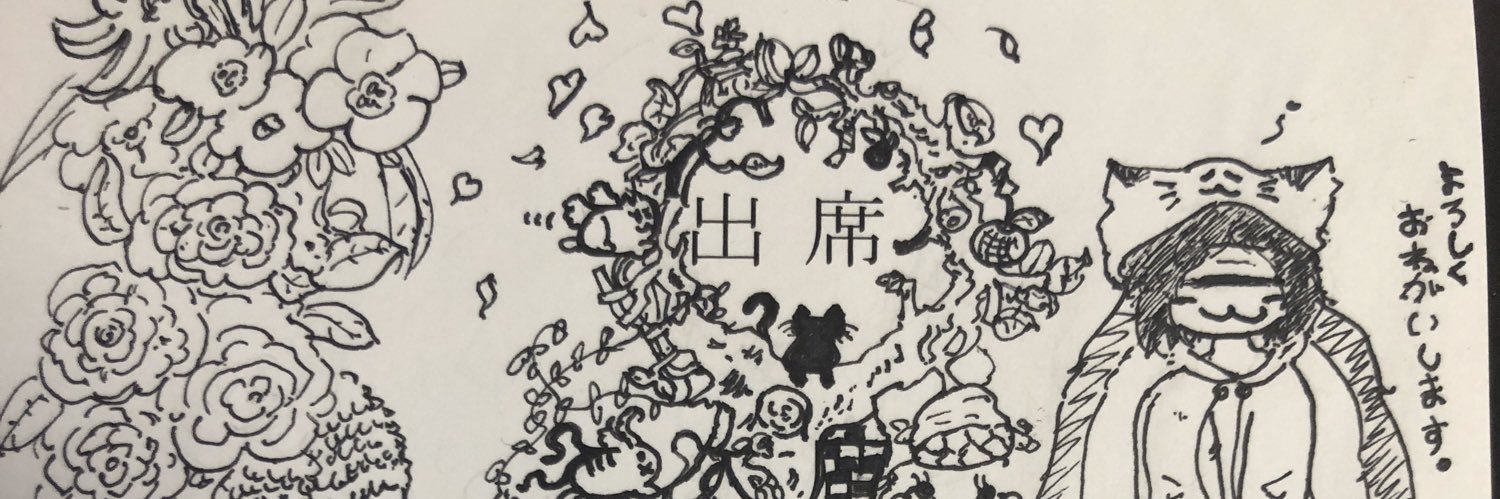 出席
よろしく
おねがいします。